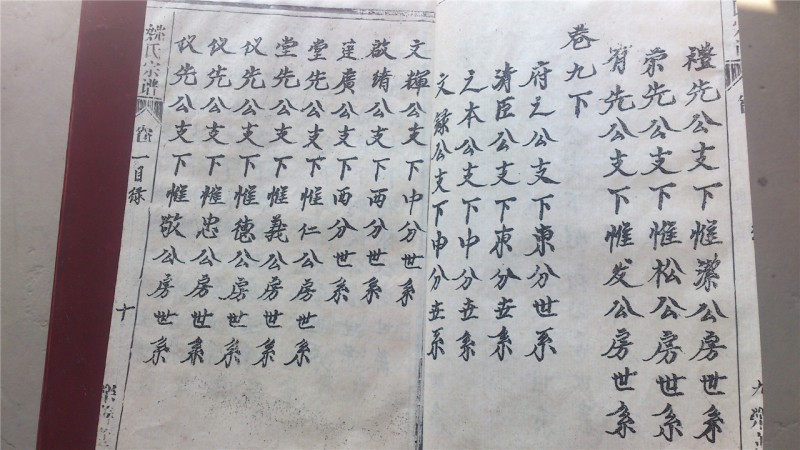 禮先公支下惟潔公房世系
荣先公支下惟松公房世系
胥先公支下惟发公房世系
卷九下
府之公支下東分世系
清臣公支下東分世系
之本公支下中分世系
文錄公支下中分世系
文輝公支下中分世系
啟緒公支下西分世系
连廣公支下西分世系
堂先公支下惟仁公房世系
堂先公支下惟義公房世系
仪先公支下惟德公房世系
仪先公支下惟忠公房世系
仪先公支下惟敬公房世系
氏宗譜
一目錄
十